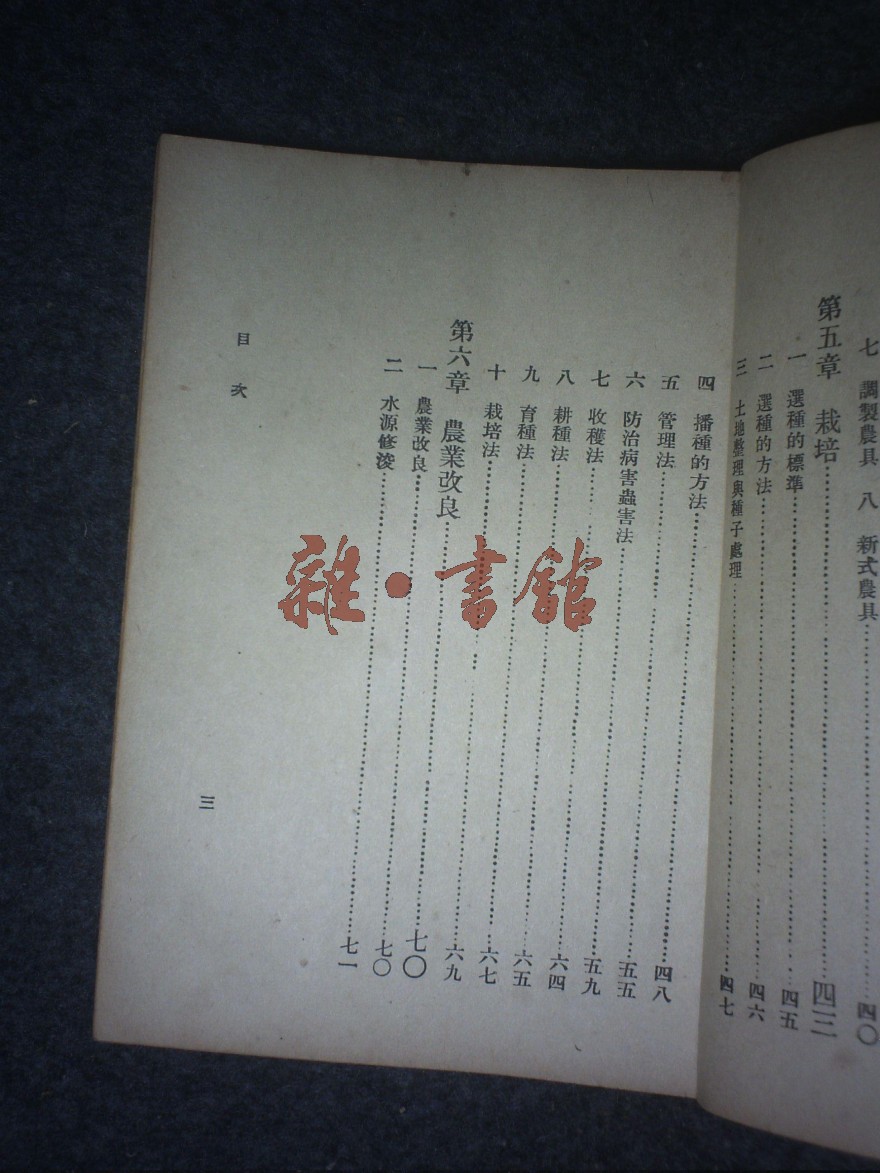 七 調製農具 八 新式農具……四〇
第五章 栽培……四三
一 選種的標準……四五
二 選種的方法……四六
三 土地整理與種子處理……四七
四 播種的方法……四八
五 管理法……五五
六 防治病害蟲害法……五九
七 收穫法……六四
八 耕種法……六五
九 育種法……六七
十 栽培法……六九
第六章 農業改良……七〇
一 農業改良……七〇
二 水源修浚……七一
目次
三
雜·書館